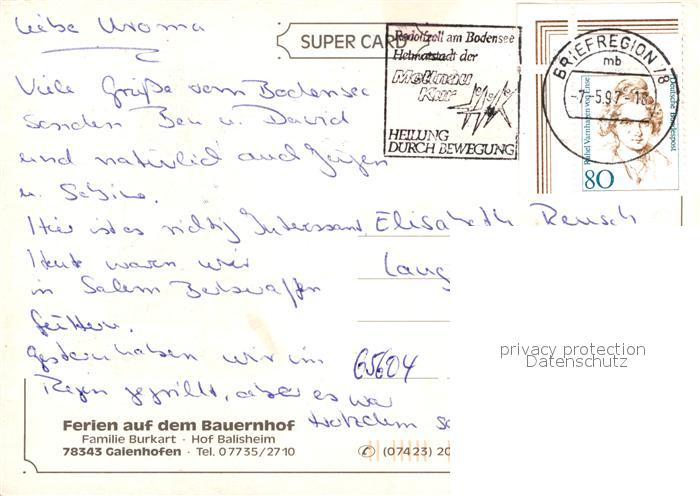 Liebe Uroma
SUPER CARD
Radolfzell am Bodensee
Heimatstadt der
Mettnau
Kur
HEILUNG
DURCH BEWEGUNG
BRIEFREGION 78
mb
5.97-18
Deutsche Bundespost
Rahel Varnhagen von Ense
80
Viele Grüße vom Bodensee
senden Ben u. David
und natürlich auch Jürgen
u. Sabine.
Hier ist es richtig Interessant.
Heut waren wir
in Salem Berberaffen
füttern.
Gestern haben wir im
Regen gegrillt, aber es war
trotzdem
Elisabeth Reusch
Lang
65604
privacy protection
Datenschutz
Ferien auf dem Bauernhof
Familie Burkart · Hof Balisheim
78343 Gaienhofen · Tel. 07735/2710
(07423) 20